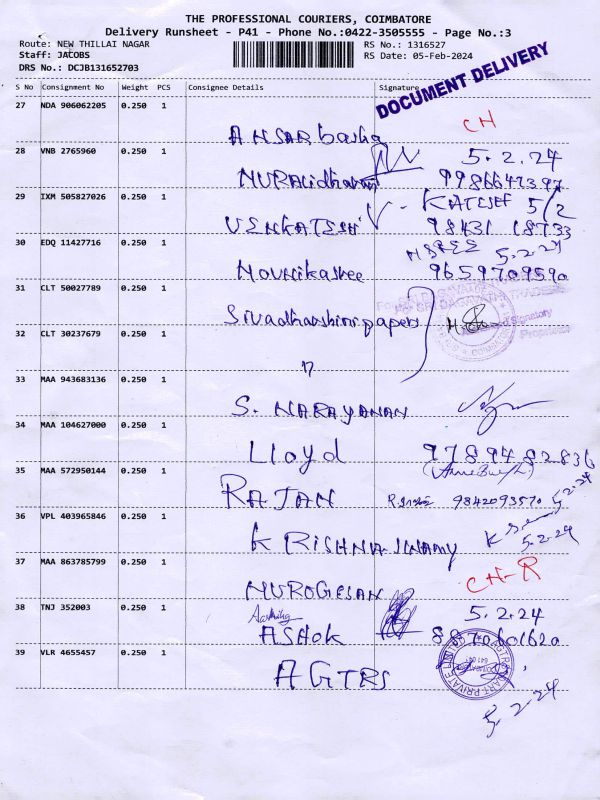 THE PROFESSIONAL COURIERS, COIMBATORE
Delivery Runsheet - P41 - Phone No.:0422-3505555 - Page No.:3
Route: NEW THILLAI NAGAR
RS No.: 1316527
Staff: JACOBS
RS Date: 05-Feb-2024
DRS No.: DCJB131652703
DOCUMENT DELIVERY
S No Consignment No Weight PCS Consignee Details Signature
27 NDA 906062205 0.250 1
ANSAR basha CH
28 VNB 2765960 0.250 1 5.2.24
MURALidharan
29 IXM 505827026 0.250 1 5/2
VENKATESH 98431 18733
30 EDQ 11427716 0.250 1 5.2.24
Mounikashee 9659709590
31 CLT 50027789 0.250 1
Sivadharshini papers
32 CLT 30237679 0.250 1
"
33 MAA 943683136 0.250 1
S. NARAYANAN
34 MAA 104627000 0.250 1
Lloyd 9789482836
35 MAA 572950144 0.250 1
RAJAN 9842093570 5.2.24
36 VPL 403965846 0.250 1
KRISHNASWAMY 5.2.24
37 MAA 863785799 0.250 1 CH-R
MUROGESAN
38 TNJ 352003 0.250 1 5.2.24
ASHOK 8870601620
39 VLR 4655457 0.250 1
AGTRS
5.2.24